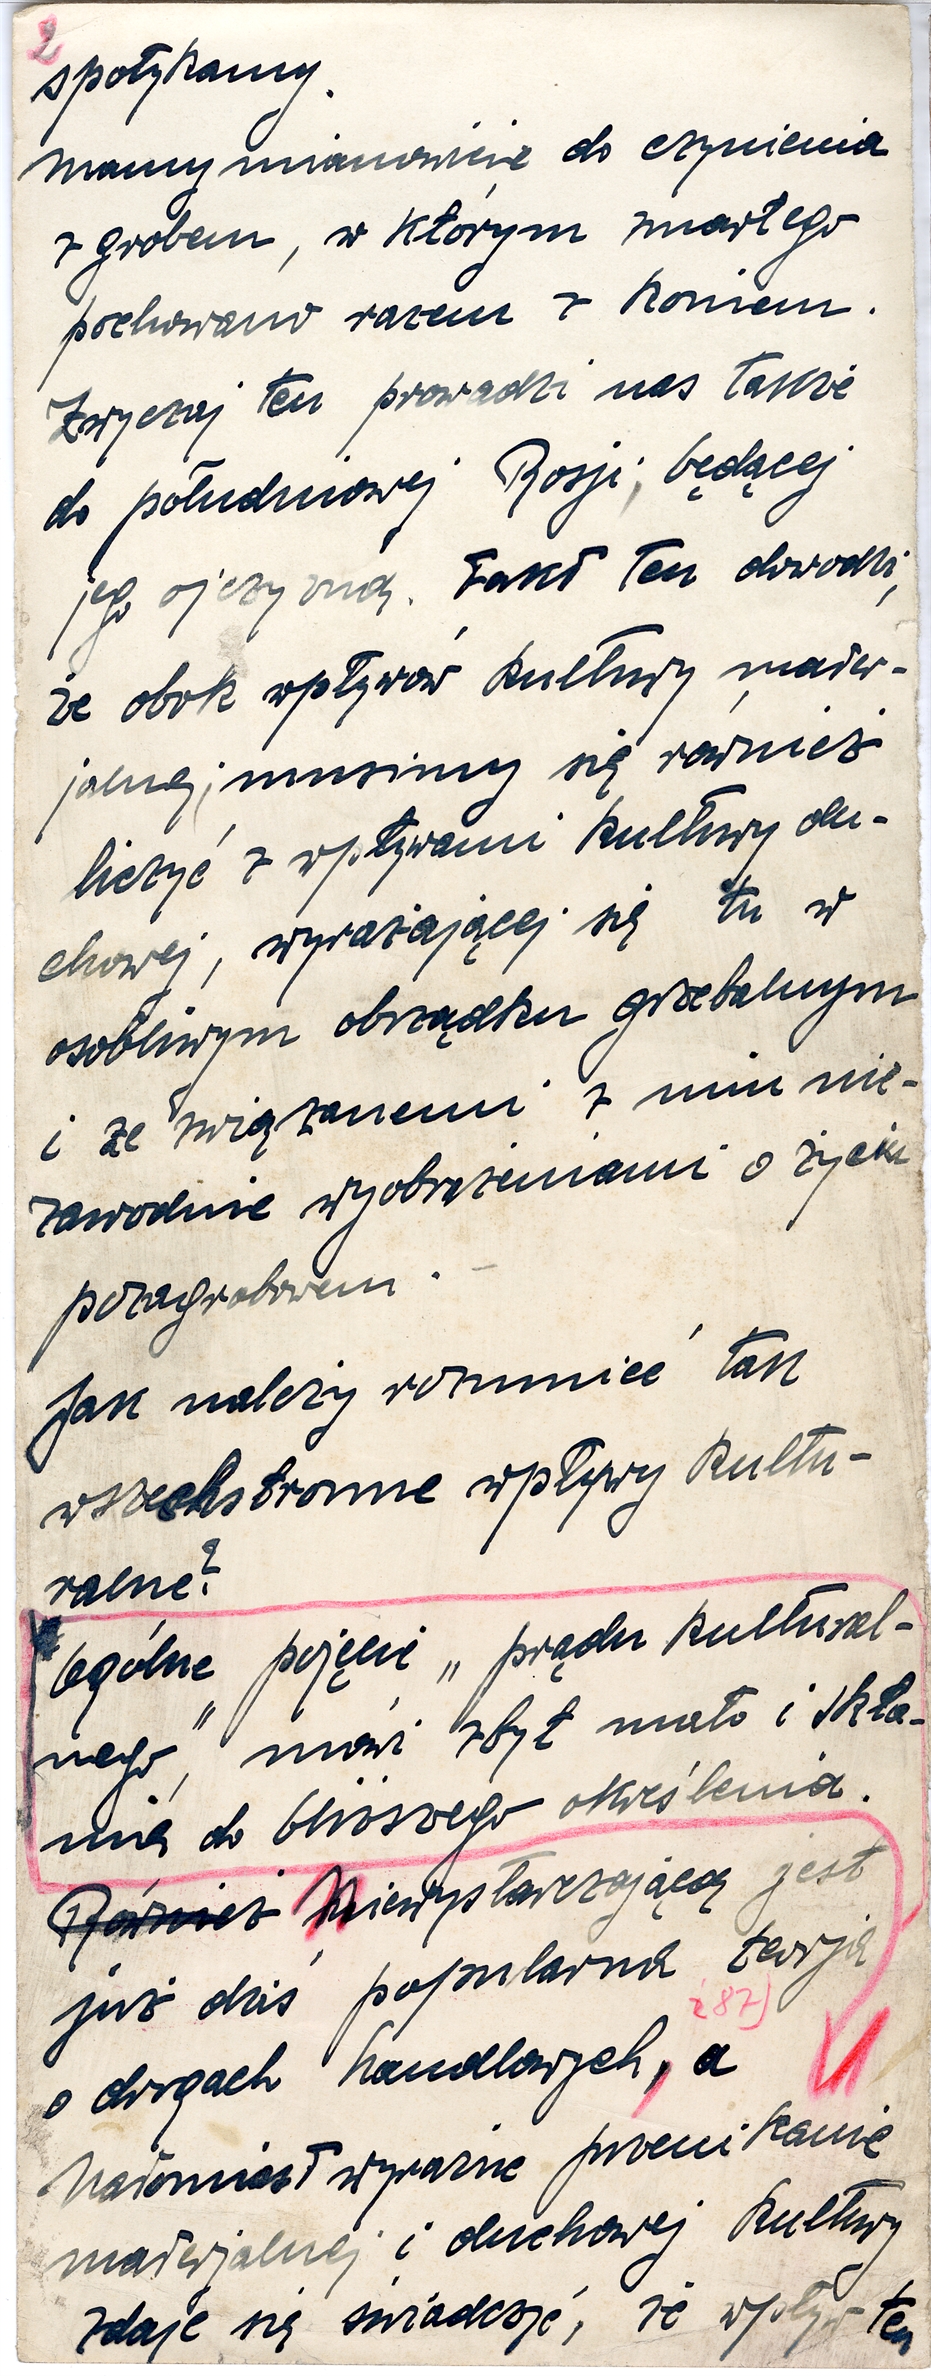 2
spotykamy.
Mamy mianowicie do czynienia
z grobem, w którym zmarłego
pochowano razem z koniem.
Zwyczaj ten prowadzi nas także
do południowej Rosji, będącej
jego ojczyzną. Fakt ten dowodzi,
że obok wpływów kultury mater-
jalnej, musimy się również
liczyć z wpływami kultury du-
chowej, wyrażającej się tu w
osobliwym obrządku grzebalnym
i ze związanemi z nim nie-
zawodnie wyobrażeniami o życiu
pozagrobowem.
Jak należy rozumieć tak
wszechstronne wpływy kultu-
ralne?
Ogólne pojęcie „prądu kultural-
nego", mówi zbyt mało i skła-
nia do bliższego określenia.
Również Niewystarczającą jest
już dziś popularna teorja
287)
o drogach handlowych, a
Natomiast wyraźne przenikanie
materjalnej i duchowej kultury
zdaje się świadczyć, że wpływ ten